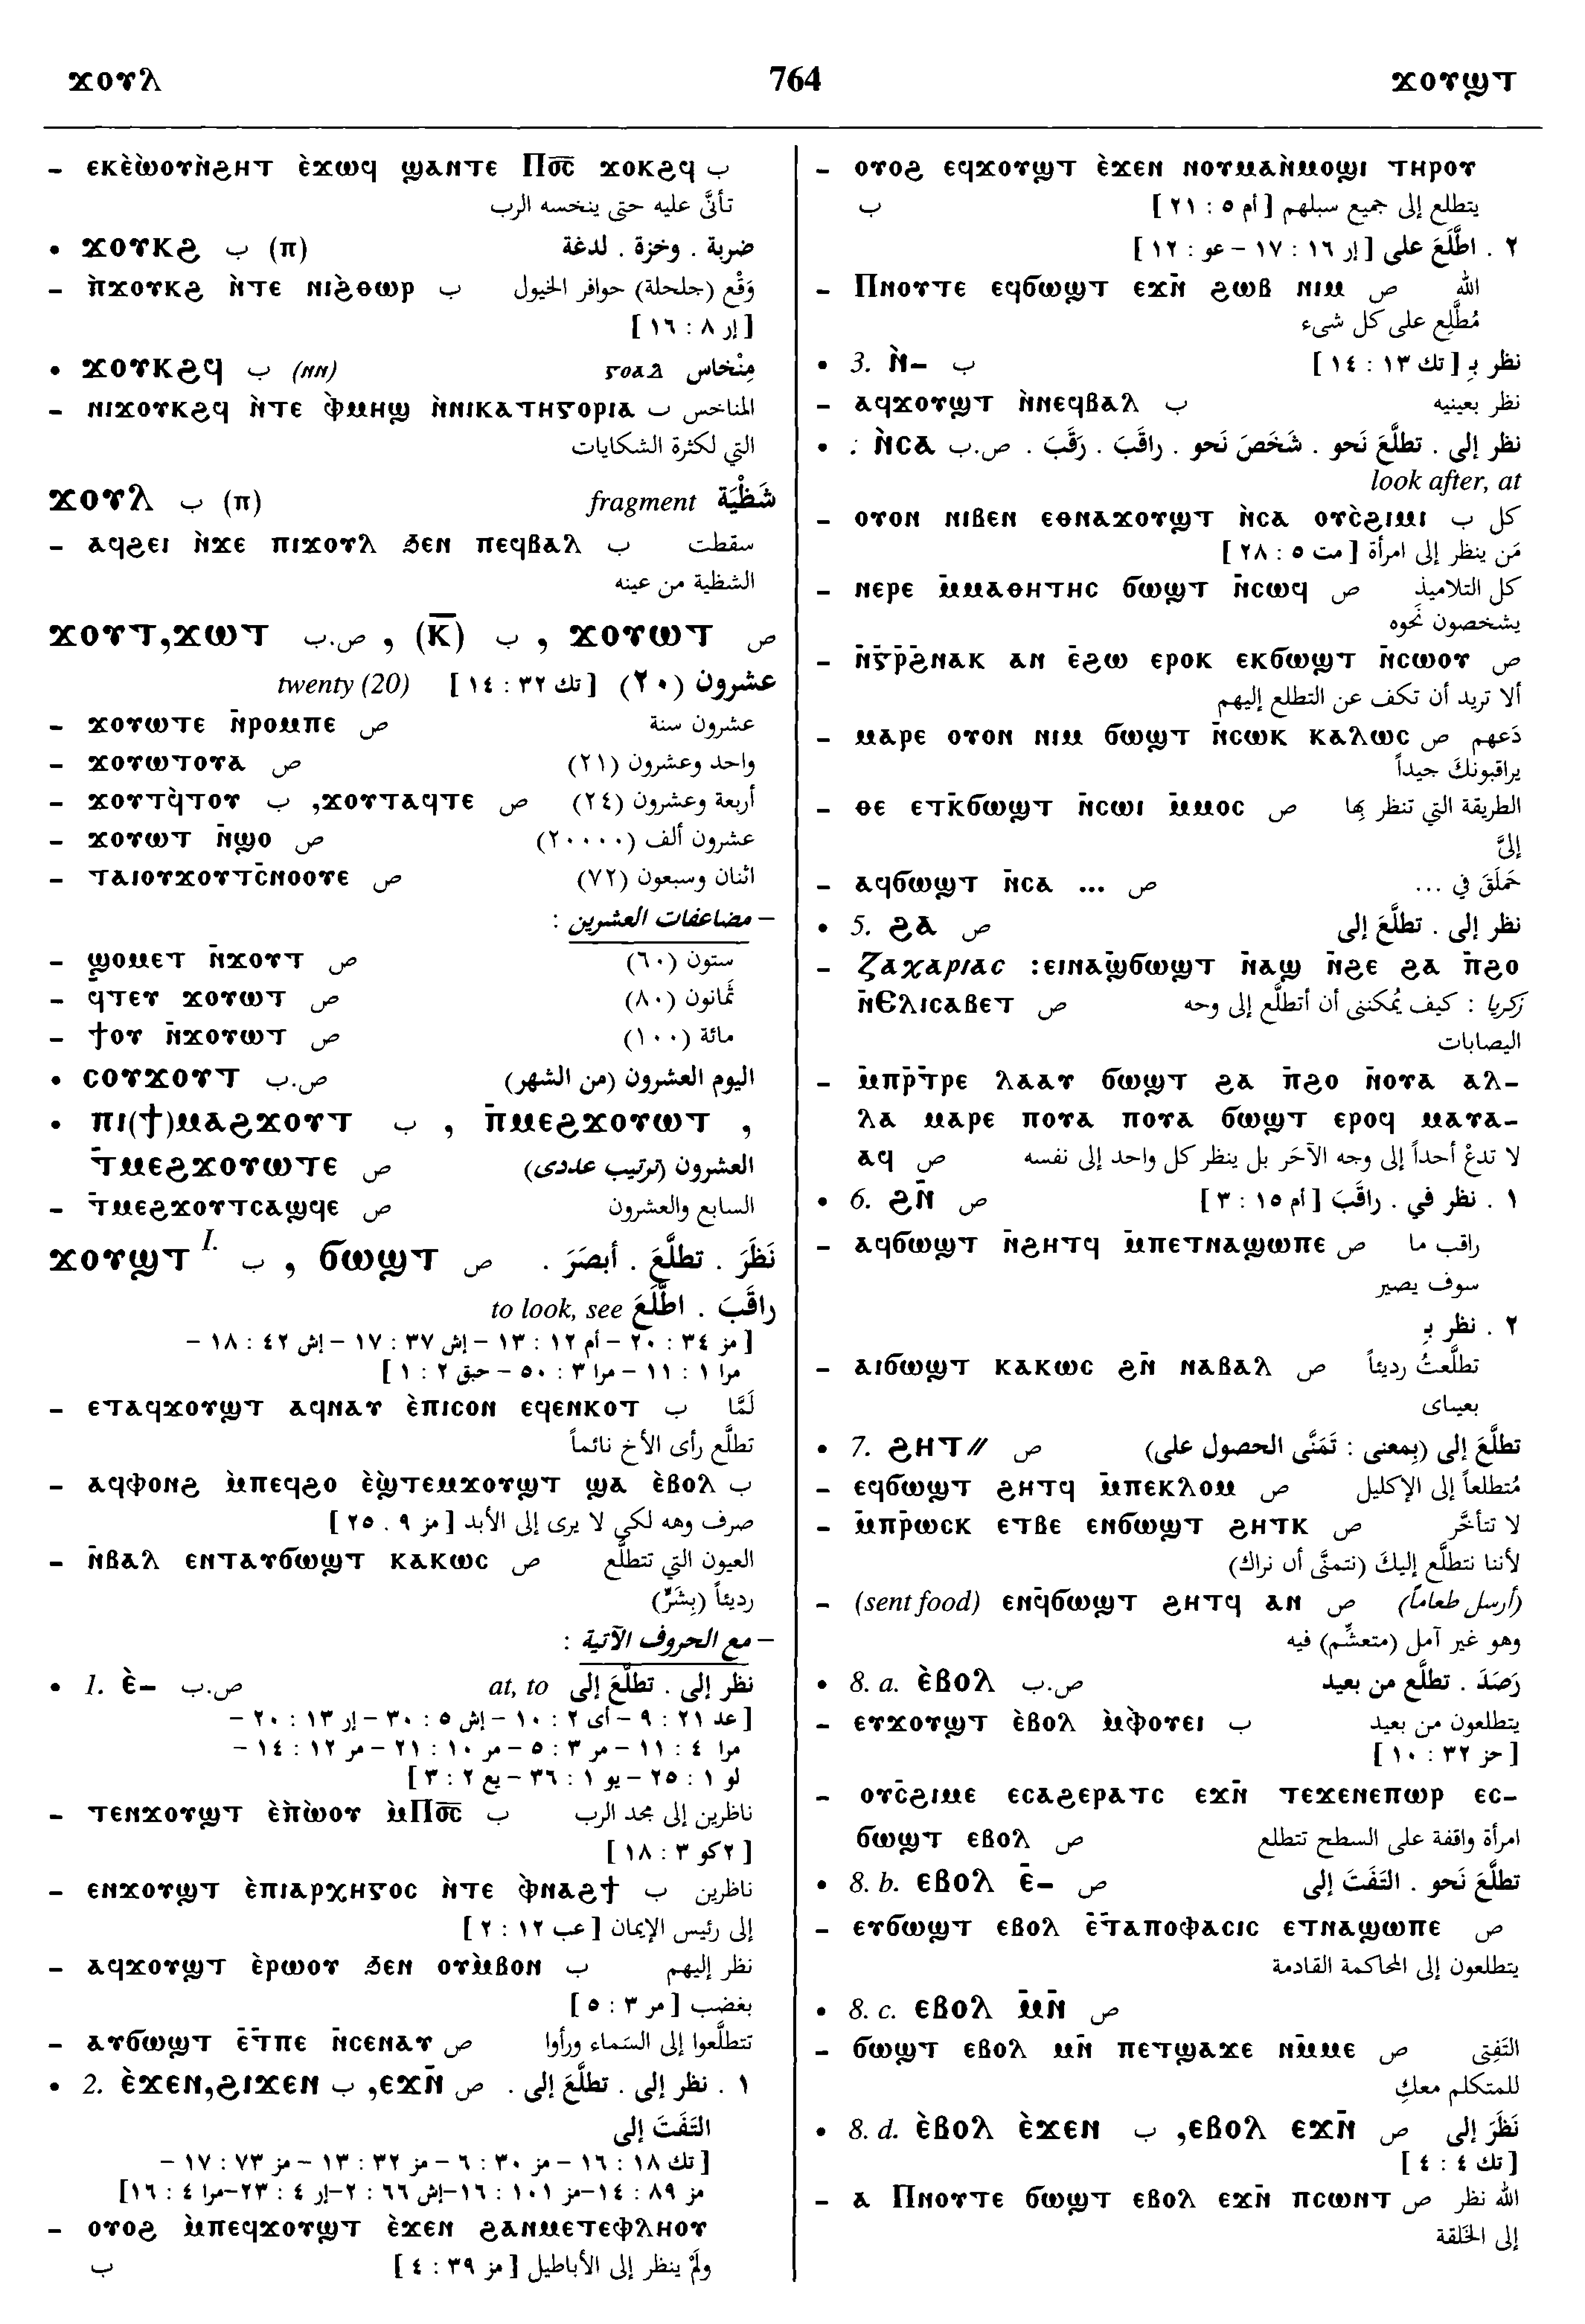 ϫⲟⲩⲗ 764 ϫⲟⲩϣⲧ
– ⲉⲕⲉ̀ⲱ̀ⲟⲩⲛ̀ϩⲏⲧ ⲉ̀ϫⲱϥ ϣⲁⲛⲧⲉ Ⲡⲟ̅ⲥ̅ ϫⲟⲕϩϥ ب
تأنَّ عليه حتى ينخسه الرب
• ϫⲟⲩⲕϩ ب (ⲡ) ضربة . وخزة . لدغة
– ⲡ̀ϫⲟⲩⲕϩ ⲛ̀ⲧⲉ ⲛⲓϩ̀ⲑⲱⲣ ب وَقْع (جلحلة) حوافر الخيول
[ إر ٨ : ١٦ ]
• ϫⲟⲩⲕϩϥ ب (ⲛⲛ) مِنْخاس
– ⲛⲓϫⲟⲩⲕϩϥ ⲛ̀ⲧⲉ ⲫ̀ⲙⲏϣ ⲛ̀ⲛⲓⲕⲁⲧⲏⲅⲟⲣⲓⲁ ب المناخس
التي لكثرة الشكايات
ϫⲟⲩⲗ ب (ⲡ) fragment شَظْيَة
– ⲁϥϩⲉⲓ ⲛ̀ϫⲉ ⲡⲓϫⲟⲩⲗ ϧⲉⲛ ⲡⲉϥⲃⲁⲗ ب سقطت
الشظية من عينه
ϫⲟⲩⲧ,ϫⲱⲧ ص.ب , (ⲕ̅) ب , ϫⲟⲩⲱⲧ ص
عشرون (٢٠) [ تك ٣٢ : ١٤ ] twenty (20)
– ϫⲟⲩⲱⲧⲉ ⲛ̄ⲣⲟⲙⲡⲉ ص عشرون سنة
– ϫⲟⲩⲱⲧⲟⲩⲁ ص واحد وعشرون (٢١)
– ϫⲟⲩⲧϥ̀ⲧⲟⲩ ب ,ϫⲟⲩⲧⲁϥⲧⲉ ص أربعة وعشرون (٢٤)
– ϫⲟⲩⲱⲧ ⲛ̄ϣⲟ ص عشرون ألف (٢٠٠٠٠)
– ⲧⲁⲓⲟⲩϫⲟⲩⲧⲥ̄ⲛⲟⲟⲩⲉ ص اثنان وسبعون (٧٢)
– مضاعفات العشرين :
– ϣⲟⲙⲉⲧ ⲛ̄ϫⲟⲩⲧ ص ستون (٦٠)
– ϥⲧⲉⲩ ϫⲟⲩⲱⲧ ص ثمانون (٨٠)
– ϯⲟⲩ ⲛ̄ϫⲟⲩⲱⲧ ص مائة (١٠٠)
• ⲥⲟⲩϫⲟⲩⲧ ص.ب اليوم العشرون (من الشهر)
• ⲡⲓ(ϯ)ⲙⲁϩϫⲟⲩⲧ ب , ⲡ̄ⲙⲉϩϫⲟⲩⲱⲧ ,
ⲧ̄ⲙⲉϩϫⲟⲩⲱⲧⲉ ص العشرون (ترتيب عددى)
– ⲧ̄ⲙⲉϩϫⲟⲩⲧⲥⲁϣϥⲉ ص السابع والعشرون
ϫⲟⲩϣⲧ I. ب , ϭⲱϣⲧ ص نَظَرَ . تطلَّعَ . أبصَرَ .
راقَبَ . اطَّلَعَ to look, see
[ مز ٣٤ : ٢٠ – أم ١٢ : ١٣ – إش ٣٧ : ١٧ – إش ٤٢ : ١٨ –
مرا ١ : ١١ – مرا ٣ : ٥٠ – حبق ٢ : ١ ]
– ⲉⲧⲁϥϫⲟⲩϣⲧ ⲁϥⲛⲁⲩ ⲉ̀ⲡⲓⲥⲟⲛ ⲉϥⲉⲛⲕⲟⲧ ب لَمَّا
تطلَّع رأى الأخ نائماً
– ⲁϥⲫⲟⲛϩ ⲙ̀ⲡⲉϥϩⲟ ⲉ̀ϣ̀ⲧⲉⲙϫⲟⲩϣⲧ ϣⲁ ⲉ̀ⲃⲟⲗ ب
صرف وهه لكى لا يرى إلى الأبد [ مز ٩ . ٢٥ ]
– ⲛ̄ⲃⲁⲗ ⲉⲛⲧⲁⲩϭⲱϣⲧ ⲕⲁⲕⲱⲥ ص العيون التي تتطلَّع
رديئاً (بِشَرٍّ)
– مع الحروف الآتية :
• 1. ⲉ̀– ص.ب نظر إلى . تطلَّعَ إلى at, to
[ عد ٢١ : ٩ – أى ٢ : ١٠ – إش ٥ : ٣٠ – إر ١٣ : ٢٠ –
مرا ٤ : ١١ – مر ٣ : ٥ – مر ١٠ : ٢١ – مر ١٢ : ١٤ –
لو ١ : ٢٥ – يو ١ : ٣٦ – يع ٢ : ٣ ]
– ⲧⲉⲛϫⲟⲩϣⲧ ⲉ̀ⲡ̀ⲱ̀ⲟⲩ ⲙ̀Ⲡⲟ̅ⲥ̅ ب ناظرين إلى مجد الرب
[ ٢كو ٣ : ١٨ ]
– ⲉⲛϫⲟⲩϣⲧ ⲉ̀ⲡⲓⲁⲣⲭⲏⲅⲟⲥ ⲛ̀ⲧⲉ ⲫ̀ⲛⲁϩϯ ب ناظرين
إلى رئيس الإيمان [ عب ١٢ : ٢ ]
– ⲁϥϫⲟⲩϣⲧ ⲉ̀ⲣⲱⲟⲩ ϧⲉⲛ ⲟⲩⲙ̀ⲃⲟⲛ ب نظر إليهم
بغضب [ مر ٣ : ٥ ]
– ⲁⲩϭⲱϣⲧ ⲉ̄ⲧ̄ⲡⲉ ⲛ̄ⲥⲉⲛⲁⲩ ص تتطلَّعوا إلى السَماء ورأوا
• 2. ⲉ̀ϫⲉⲛ,ϩⲓϫⲉⲛ ب ,ⲉϫⲛ̄ ص ١ . نظر إلى . تطلَّعَ إلى .
التَفَتَ إلى
[ تك ١٨ : ١٦ – مز ٣٠ : ٦ – مز ٣٢ : ١٣ – مز ٧٣ : ١٧ –
مز ٨٩ : ١٤–مز ١٠١ : ١٦–إش ٦٦ : ٢–إر ٤ : ٢٣–مرا ٤ : ١٦]
– ⲟⲩⲟϩ ⲙ̀ⲡⲉϥϫⲟⲩϣⲧ ⲉ̀ϫⲉⲛ ϩⲁⲛⲙⲉⲧⲉⲫⲗⲏⲟⲩ
ولَمْ ينظر إلى الأباطيل [ مز ٣٩ : ٤ ] ب
– ⲟⲩⲟϩ ⲉϥϫⲟⲩϣⲧ ⲉ̀ϫⲉⲛ ⲛⲟⲩⲙⲁⲙ̀ⲙⲟϣⲓ ⲧⲏⲣⲟⲩ
يتطلع إلى جميع سبلهم [ أم ٥ : ٢١ ] ب
٢ . اطَّلَعَ على [ إر ١٦ : ١٧ – عو : ١٢ ]
– Ⲡⲛⲟⲩⲧⲉ ⲉϥϭⲱϣⲧ ⲉϫⲛ̄ ϩⲱⲃ ⲛⲓⲙ ص الله
مُطَّلِع على كل شىء
• 3. ⲛ̀– ب نظر بِـ [ تك ١٣ : ١٤ ]
– ⲁϥϫⲟⲩϣⲧ ⲛ̀ⲛⲉϥⲃⲁⲗ ب نظر بعينيه
• : ⲛ̀ⲥⲁ ص.ب نظر إلى . تطلَّعَ نَحو . شَخَصَ نَحو . راقَبَ . رَقَبَ .
look after, at
– ⲟⲩⲟⲛ ⲛⲓⲃⲉⲛ ⲉⲑⲛⲁϫⲟⲩϣⲧ ⲛ̀ⲥⲁ ⲟⲩⲥ̀ϩⲓⲙⲓ ب كل
مَن ينظر إلى امرأة [ مت ٥ : ٢٨ ]
– ⲛⲉⲣⲉ ⲙ̄ⲙⲁⲑⲏⲧⲏⲥ ϭⲱϣⲧ ⲛ̄ⲥⲱϥ ص كل التلاميذ
يشخصون نَحوه
– ⲛ̄ⲅ̄ⲣ̄ϩ̄ⲛⲁⲕ ⲁⲛ ⲉ̄ϩⲱ ⲉⲣⲟⲕ ⲉⲕϭⲱϣⲧ ⲛ̄ⲥⲱⲟⲩ ص
ألا تريد أن تكف عن التطلع إليهم
– ⲙⲁⲣⲉ ⲟⲩⲟⲛ ⲛⲓⲙ ϭⲱϣⲧ ⲛ̄ⲥⲱⲕ ⲕⲁⲗⲱⲥ ص دَعهم
يراقبونكَ جيداً
– ⲑⲉ ⲉⲧⲕ̄ϭⲱϣⲧ ⲛ̄ⲥⲱⲓ ⲙ̄ⲙⲟⲥ ص الطريقة التي تنظر بِها
إلىَّ
– ⲁϥϭⲱϣⲧ ⲛ̄ⲥⲁ ... ص حَملَقَ في ...
• 5. ϩⲁ ص نظر إلى . تطلَّعَ إلى
– Ⲍⲁⲭⲁⲣⲓⲁⲥ :ⲉⲓⲛⲁϣ̄ϭⲱϣⲧ ⲛ̄ⲁϣ ⲛ̄ϩⲉ ϩⲁ ⲡ̄ϩⲟ
ⲛ̄Ⲉⲗⲓⲥⲁⲃⲉⲧ ص زكريا : كيف يُمكننى أن أتطلَّع إلى وجه
اليصابات
– ⲙ̄ⲡⲣ̄ⲧ̄ⲣⲉ ⲗⲁⲁⲩ ϭⲱϣⲧ ϩⲁ ⲡ̄ϩⲟ ⲛ̄ⲟⲩⲁ ⲁⲗ–
ⲗⲁ ⲙⲁⲣⲉ ⲡⲟⲩⲁ ⲡⲟⲩⲁ ϭⲱϣⲧ ⲉⲣⲟϥ ⲙⲁⲩⲁ–
ⲁϥ ص لا تدعْ أحداً إلى وجه الآخَر بل ينظر كل واحد إلى نفسه
• 6. ϩⲛ̄ ص ١ . نظر في . راقَبَ [ أم ١٥ : ٣ ]
– ⲁϥϭⲱϣⲧ ⲛ̄ϩⲏⲧϥ ⲙ̄ⲡⲉⲧⲛⲁϣⲱⲡⲉ ص راقب ما
سوف يصير
٢ . نظر بِـ
– ⲁⲓϭⲱϣⲧ ⲕⲁⲕⲱⲥ ϩⲛ̄ ⲛⲁⲃⲁⲗ ص تطلَّعتُ رديئاً
بعيناى
• 7. ϩⲏⲧ// ص تطلَّعَ إلى (بِمعنى : تَمَنَّى الحصول على)
– ⲉϥϭⲱϣⲧ ϩⲏⲧϥ ⲙ̄ⲡⲉⲕⲗⲟⲙ ص مُتطلعاً إلى الإكليل
– ⲙ̄ⲡⲣ̄ⲱⲥⲕ ⲉⲧⲃⲉ ⲉⲛϭⲱϣⲧ ϩⲏⲧⲕ ص لا تتأخَّر
لأننا نتطلَّع إليكَ (نتمنَّى أن نراك)
– (sent food) ⲉⲛϥ̄ϭⲱϣⲧ ϩⲏⲧϥ ⲁⲛ ص (أرسل طعاماً)
وهو غير آمل (متعشِّم) فيه
• 8. a. ⲉ̀ⲃⲟⲗ ص.ب رَصَدَ . تطلَّع من بعيد
– ⲉⲩϫⲟⲩϣⲧ ⲉ̀ⲃⲟⲗ ⲙ̀ⲫ̀ⲟⲩⲉⲓ ب يتطلعون من بعيد
[ حز ٣٢ : ١٠ ]
– ⲟⲩⲥ̄ϩⲓⲙⲉ ⲉⲥⲁϩⲉⲣⲁⲧⲥ ⲉϫⲛ̄ ⲧⲉϫⲉⲛⲉⲡⲱⲣ ⲉⲥ–
ϭⲱϣⲧ ⲉⲃⲟⲗ ص امرأة واقفة على السطح تتطلع
• 8. b. ⲉⲃⲟⲗ ⲉ̄– ص تطلَّعَ نَحو . التَفَتَ إلى
– ⲉⲩϭⲱϣⲧ ⲉⲃⲟⲗ ⲉ̄ⲧ̄ⲁⲡⲟⲫⲁⲥⲓⲥ ⲉⲧⲛⲁϣⲱⲡⲉ ص
يتطلعون إلى المحاكمة القادمة
• 8. c. ⲉⲃⲟⲗ ⲙ̄ⲛ̄ ص
– ϭⲱϣⲧ ⲉⲃⲟⲗ ⲙⲛ̄ ⲡⲉⲧϣⲁϫⲉ ⲛⲙ̄ⲙⲉ ص التَفِتى
للمتكلم معكِ
• 8. d. ⲉ̀ⲃⲟⲗ ⲉ̀ϫⲉⲛ ب ,ⲉⲃⲟⲗ ⲉϫⲛ̄ ص نَظَرَ إلى
[ تك ٤ : ٤ ]
– ⲁ Ⲡⲛⲟⲩⲧⲉ ϭⲱϣⲧ ⲉⲃⲟⲗ ⲉϫⲛ̄ ⲡⲥⲱⲛⲧ ص الله نظر
إلى الخَلقة